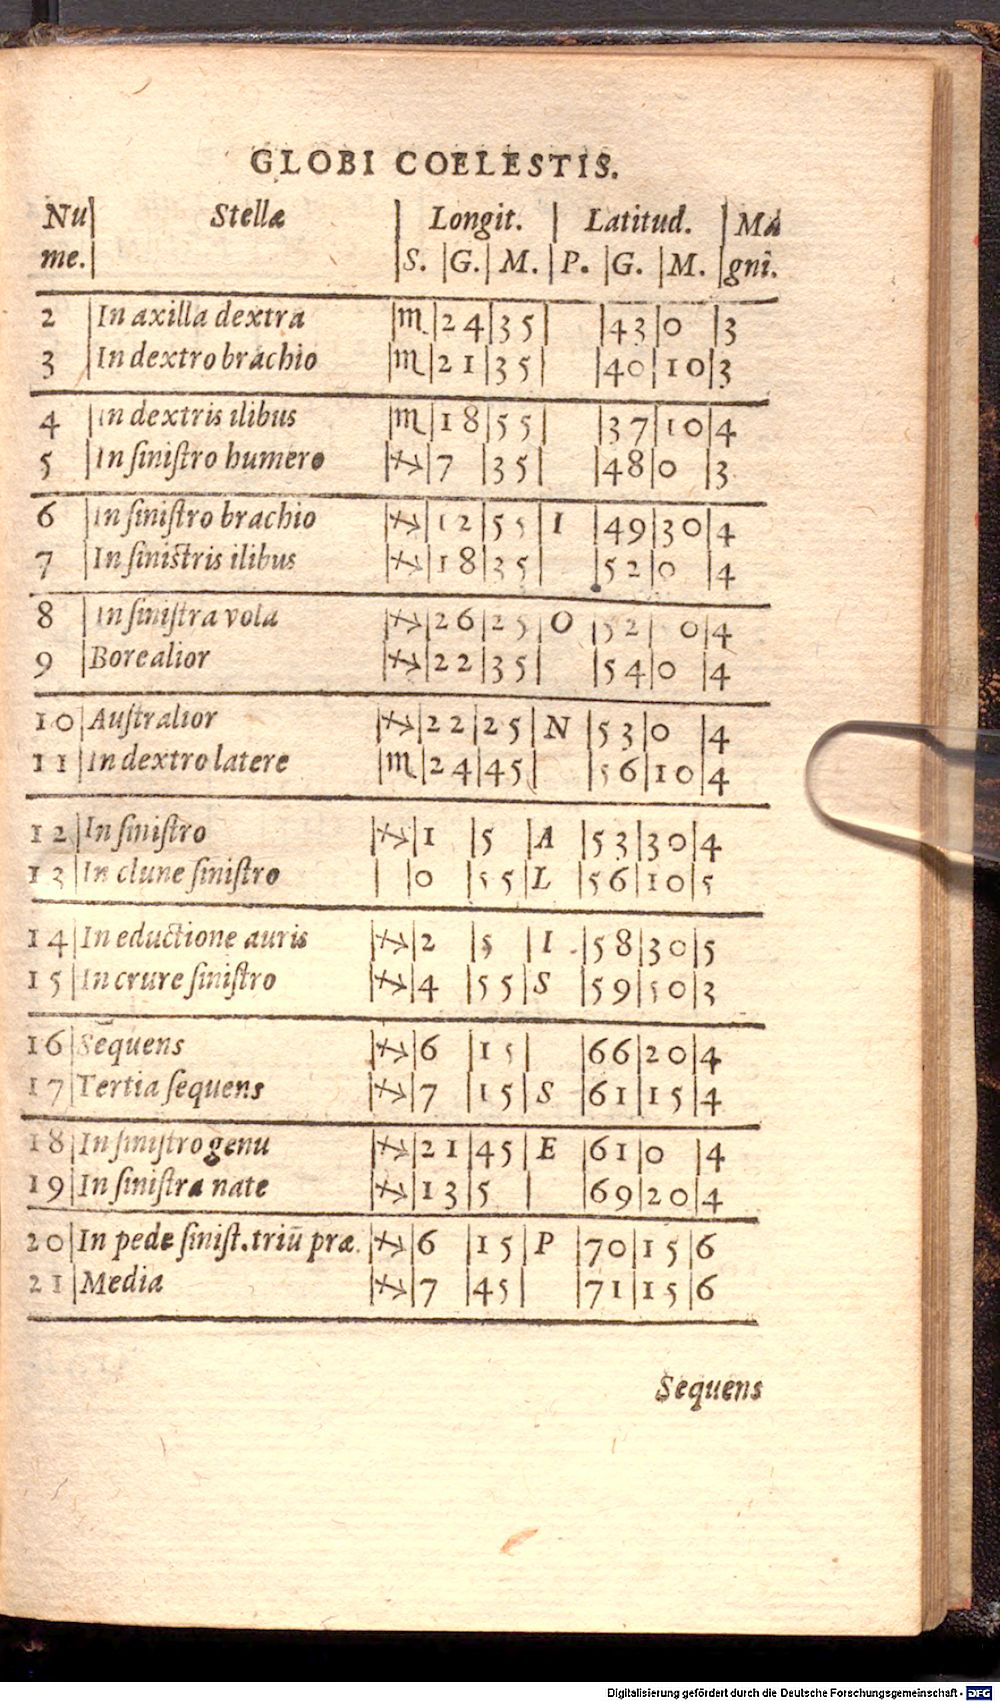 GLOBI COELESTIS.
Nu| Stellæ | Longit. | Latitud. | Ma
me.| |S. |G.| M. | P. |G. |M. |gni.
2 |In axilla dextra |♏|24|35| |43|0 |3
3 |In dextro brachio |♏|21|35| |40|10|3
4 |In dextris ilibus |♏|18|55| |37|10|4
5 |In siniſtro humero |♐|7 |35| |48|0 |3
6 |In siniſtro brachio |♐|12|55|I |49|30|4
7 |In ſiniſtris ilibus |♐|18|35| |52|0 |4
8 |In ſiniſtra vola |♐|26|25|O |52| 0|4
9 |Borealior |♐|22|35| |54|0 |4
10|Auſtralior |♐|22|25|N |53|0 |4
11|In dextro latere |♏|24|45| |56|10|4
12|In ſiniſtro |♐|1 |5 |A |53|30|4
13|In clune ſiniſtro | |0 |55|L |56|10|5
14|In eductione auris |♐|2 |5 |I |58|30|5
15|In crure ſiniſtro |♐|4 |55|S |59|50|3
16|Sequens |♐|6 |15| |66|20|4
17|Tertia ſequens |♐|7 |15|S |61|15|4
18|In ſiniſtro genu |♐|21|45|E |61|0 |4
19|In ſiniſtra nate |♐|13|5 | |69|20|4
20|In pede ſiniſt. triū præ. |♐|6 |15|P |70|15|6
21|Media |♐|7 |45| |71|15|6
Sequens
Digitalisierung gefördert durch die Deutsche Forschungsgemeinschaft - DFG